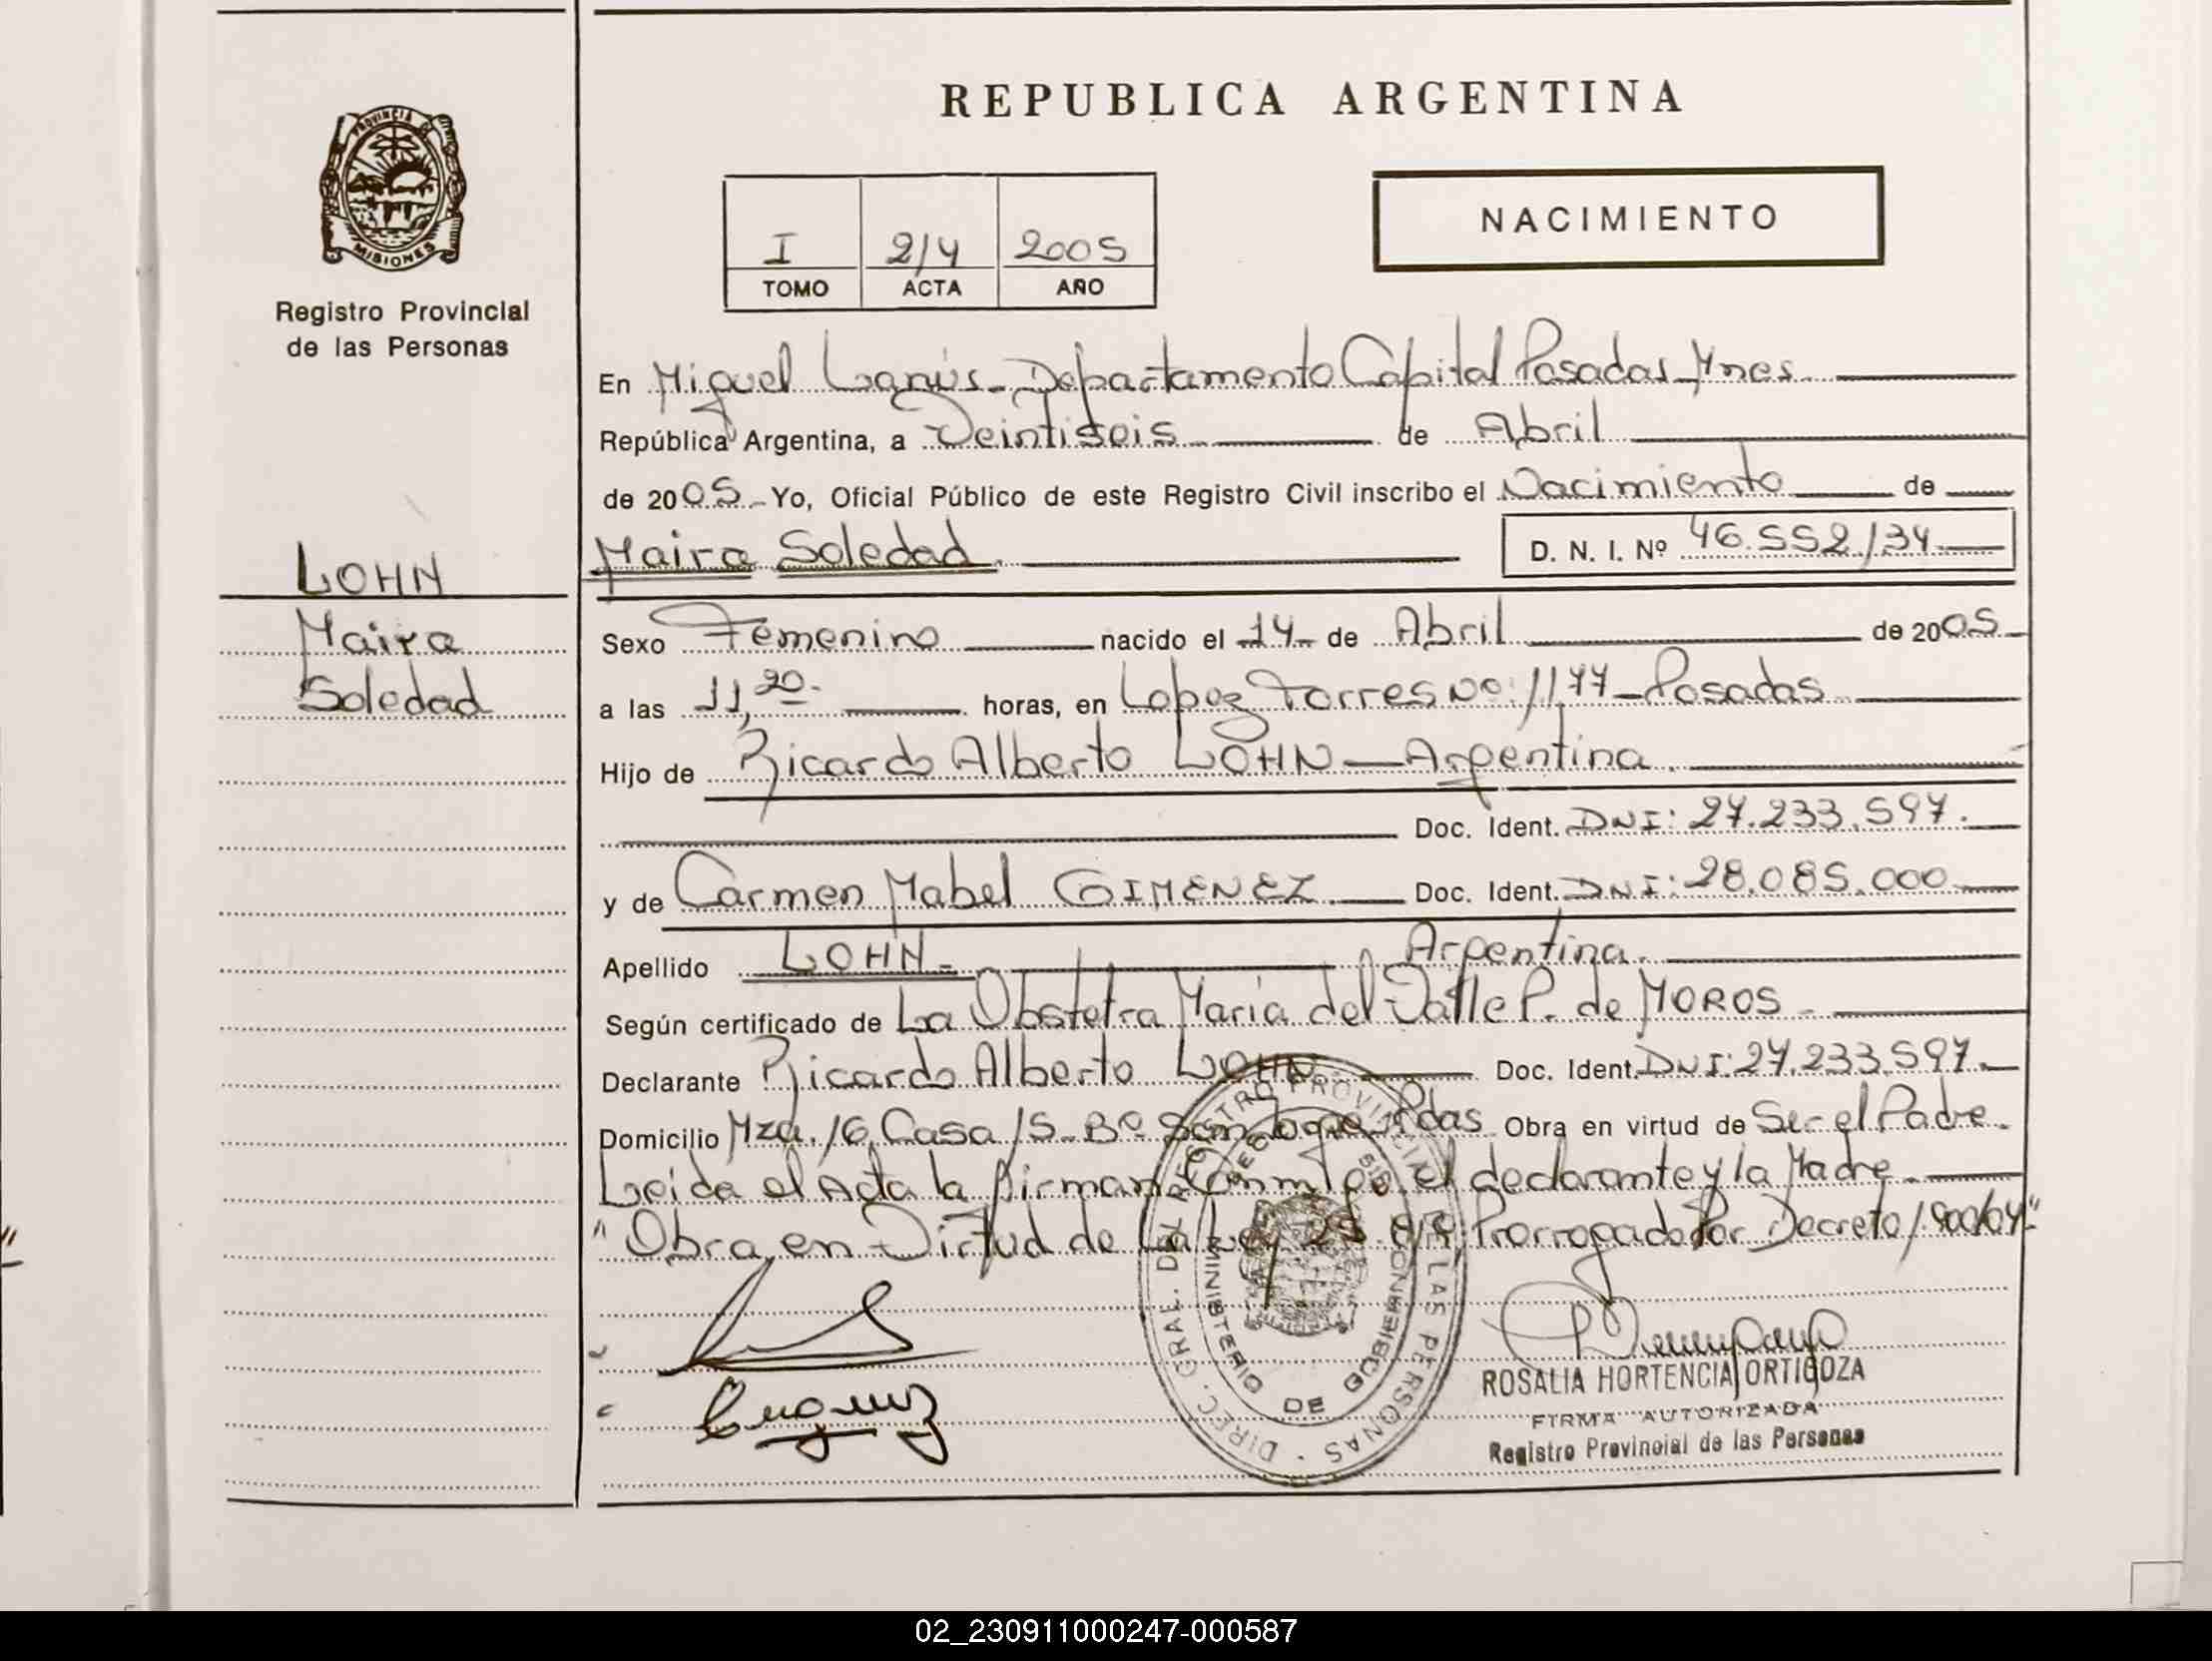 PROVINCIA DE
MISIONES
Registro Provincial
de las Personas
LOHN
Maira
Soledad
REPUBLICA ARGENTINA
I 214 2005
TOMO ACTA AÑO
NACIMIENTO
En Miguel Lanús - Departamento Capital Posadas Mnes.
República Argentina, a Veintiseis de Abril
de 2005 - Yo, Oficial Público de este Registro Civil inscribo el Nacimiento de
Maira Soledad. D. N. I. Nº 46.552.134
Sexo Femenino nacido el 14 de Abril de 2005
a las 11,20. horas, en Lopez Torres Nº: 1177 - Posadas
Hijo de Ricardo Alberto LOHN - Argentina.
Doc. Ident. DNI: 27.233.597.
y de Carmen Mabel GIMENEZ. Doc. Ident. DNI: 28.085.000
Apellido LOHN - Argentina.
Según certificado de La Obstetra Maria del Valle P. de MOROS
Declarante Ricardo Alberto LOHN Doc. Ident. DNI: 27.233.597.
Domicilio Mza. 16 Casa 15 - Bº San Pdas Obra en virtud de Ser el Padre.
Leida el Acta la firman Conmigo el declarante y la Madre.
"Obra en Virtud de La Ley 25. Prorrogado Por Decreto 1.900/04"
DIREC. GRAL. DEL REGISTRO PROVINCIAL DE LAS PERSONAS
MINISTERIO DE GOBIERNO
ROSALIA HORTENCIA ORTIGOZA
FIRMA AUTORIZADA
Registro Provincial de las Personas
02_230911000247-000587